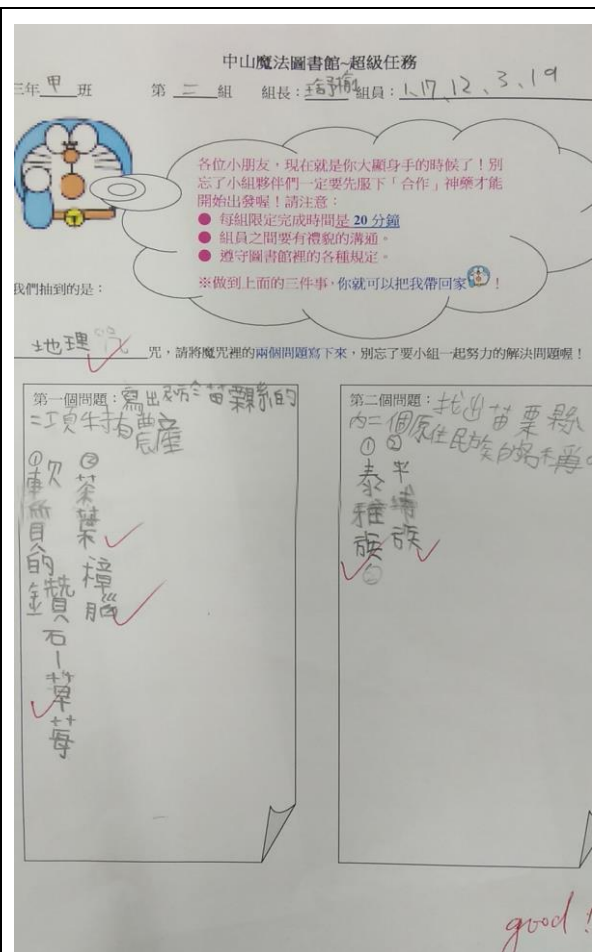 中山魔法圖書館~超級任務
三年甲班 第二組 組長： 組員：1、17、12、3、19
各位小朋友，現在就是你大顯身手的時候了！別
忘了小組夥伴們一定要先服下「合作」神藥才能
開始出發喔！請注意：
● 每組限定完成時間是 20 分鐘
● 組員之間要有禮貌的溝通。
● 遵守圖書館裡的各種規定。
※做到上面的三件事，你就可以把我帶回家！
我們抽到的是：
地理咒，請將魔咒裡的兩個問題寫下來，別忘了要小組一起努力的解決問題喔！
第一個問題：寫出 於苗栗縣的
二項特有農產
①軟 的
鑽石－草莓
②茶葉
樟腦
第二個問題：找出苗栗縣
內二個原住民族的名稱。
①泰雅族
②平埔族
good！